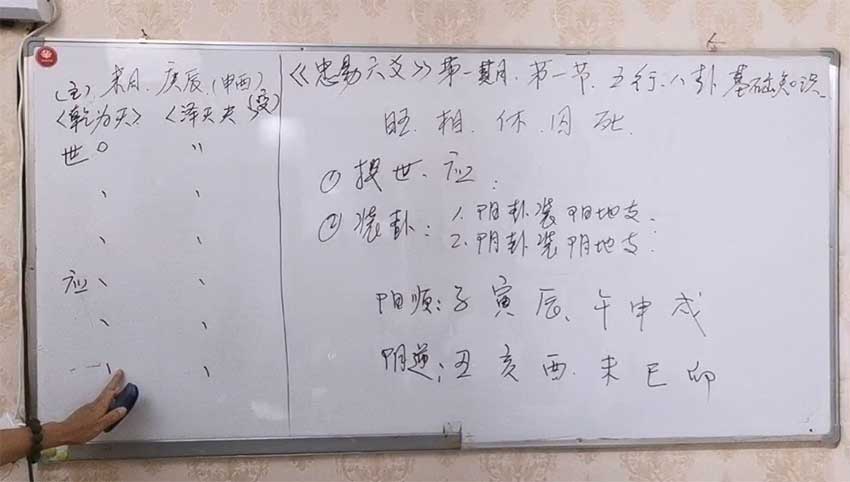 (主) 未月 庚辰 (申酉)
《乾为天》 《泽天夬》(变)
世 〇 〃
、 、
、 、
应 、 、
、 、
、 、
《忠易六爻》第一期.第一节.五行.八卦基础知识
旺.相.休.囚.死.
① 找世.应:
② 装卦: 1.阳卦装阳地支.
2.阴卦装阴地支:
阳顺:子 寅 辰、午 申 戌
阴逆:丑 亥 酉.未 巳 卯